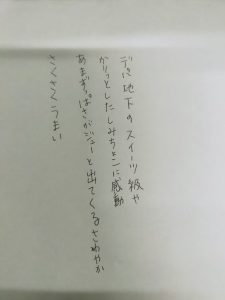 デパ地下のスイーツ級や
かりっとしたしみちょこに感動
あまずっぱさがジューと出てくるさわやか
さくさくうまい